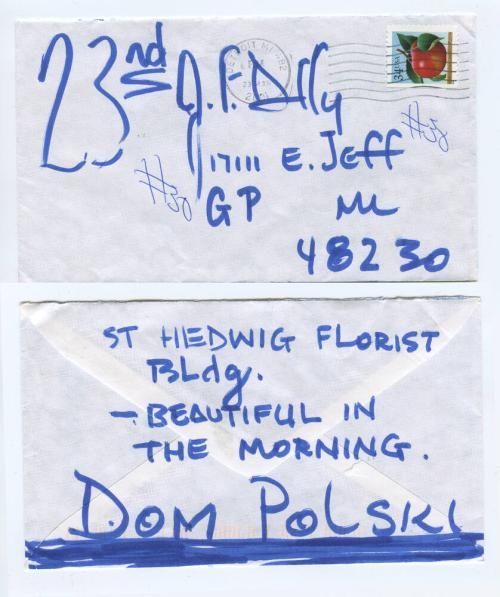 23rd
DETROIT MI 482
34 USA
#38
17111 E. JEFF
#30
GP MI
48230
ST HEDWIG FLORIST
BLdg.
- BEAUTIFUL IN
THE MORNING.
DOM POLSKI